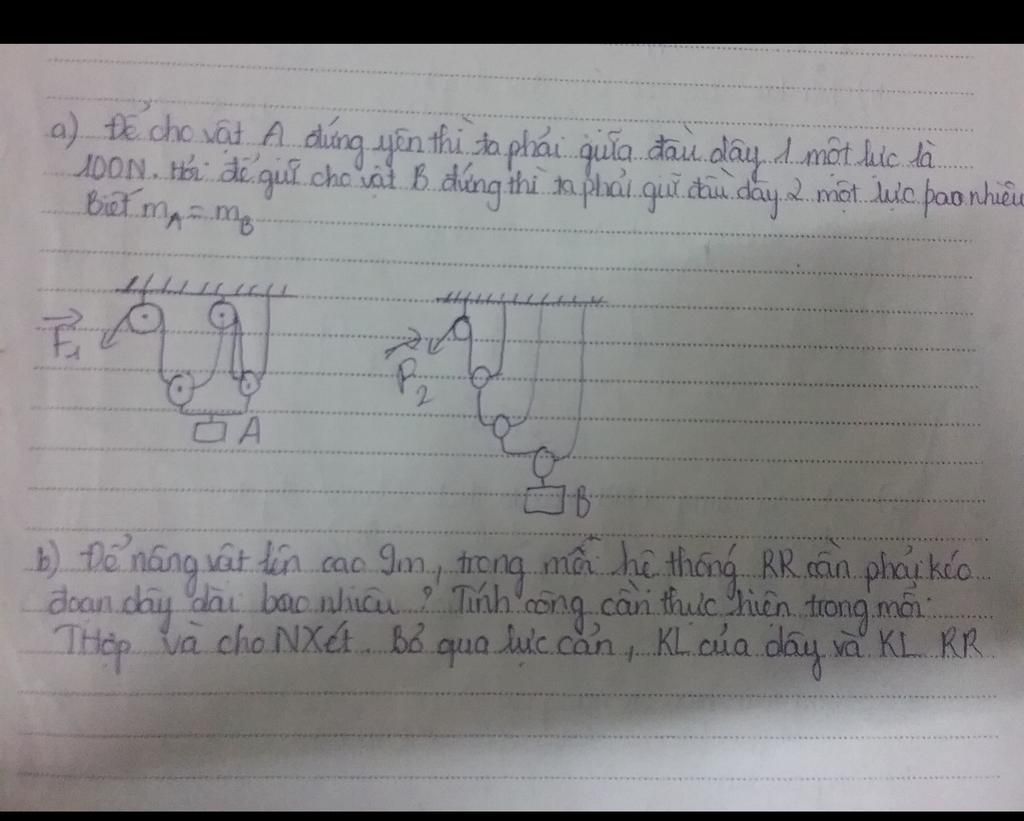 a) Để cho vật A đứng yên thì ta phải giữa đầu dây 1 một lực là
100N. Hỏi để giữ cho vật B đứng thì ta phải giữ đầu dây 2 một lực bao nhiêu
Biết mA = mB
F1
F2
A
B
b) Để nâng vật lên cao 9m, trong mỗi hệ thống RR cần phải kéo
đoạn dây dài bao nhiêu? Tính công cần thực hiện trong mỗi
THợp và cho NXét. Bỏ qua lực cản, KL của dây và KL RR